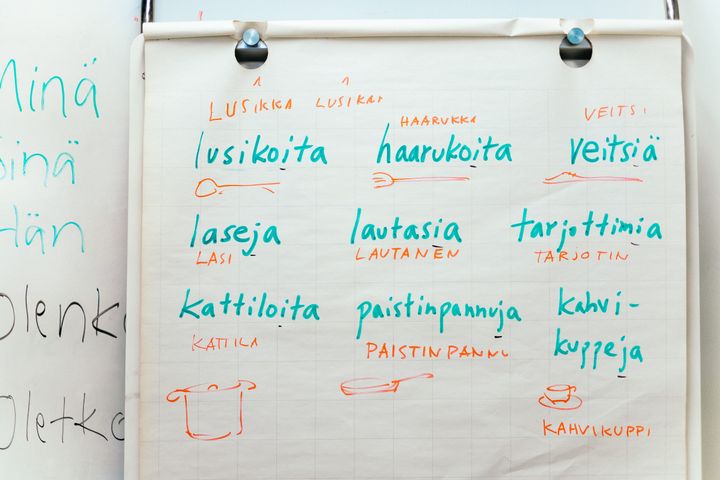 Minä
Sinä
Hän
Olenko
Oletko
LUSIKKA LUSIKAT
HAARUKKA
VEITSI
lusikoita haarukoita veitsiä
laseja lautasia tarjottimia
LASI LAUTANEN TARJOTIN
kattiloita paistinpannuja kahvi-
kuppeja
KATTILA PAISTINPANNU
KAHVIKUPPI